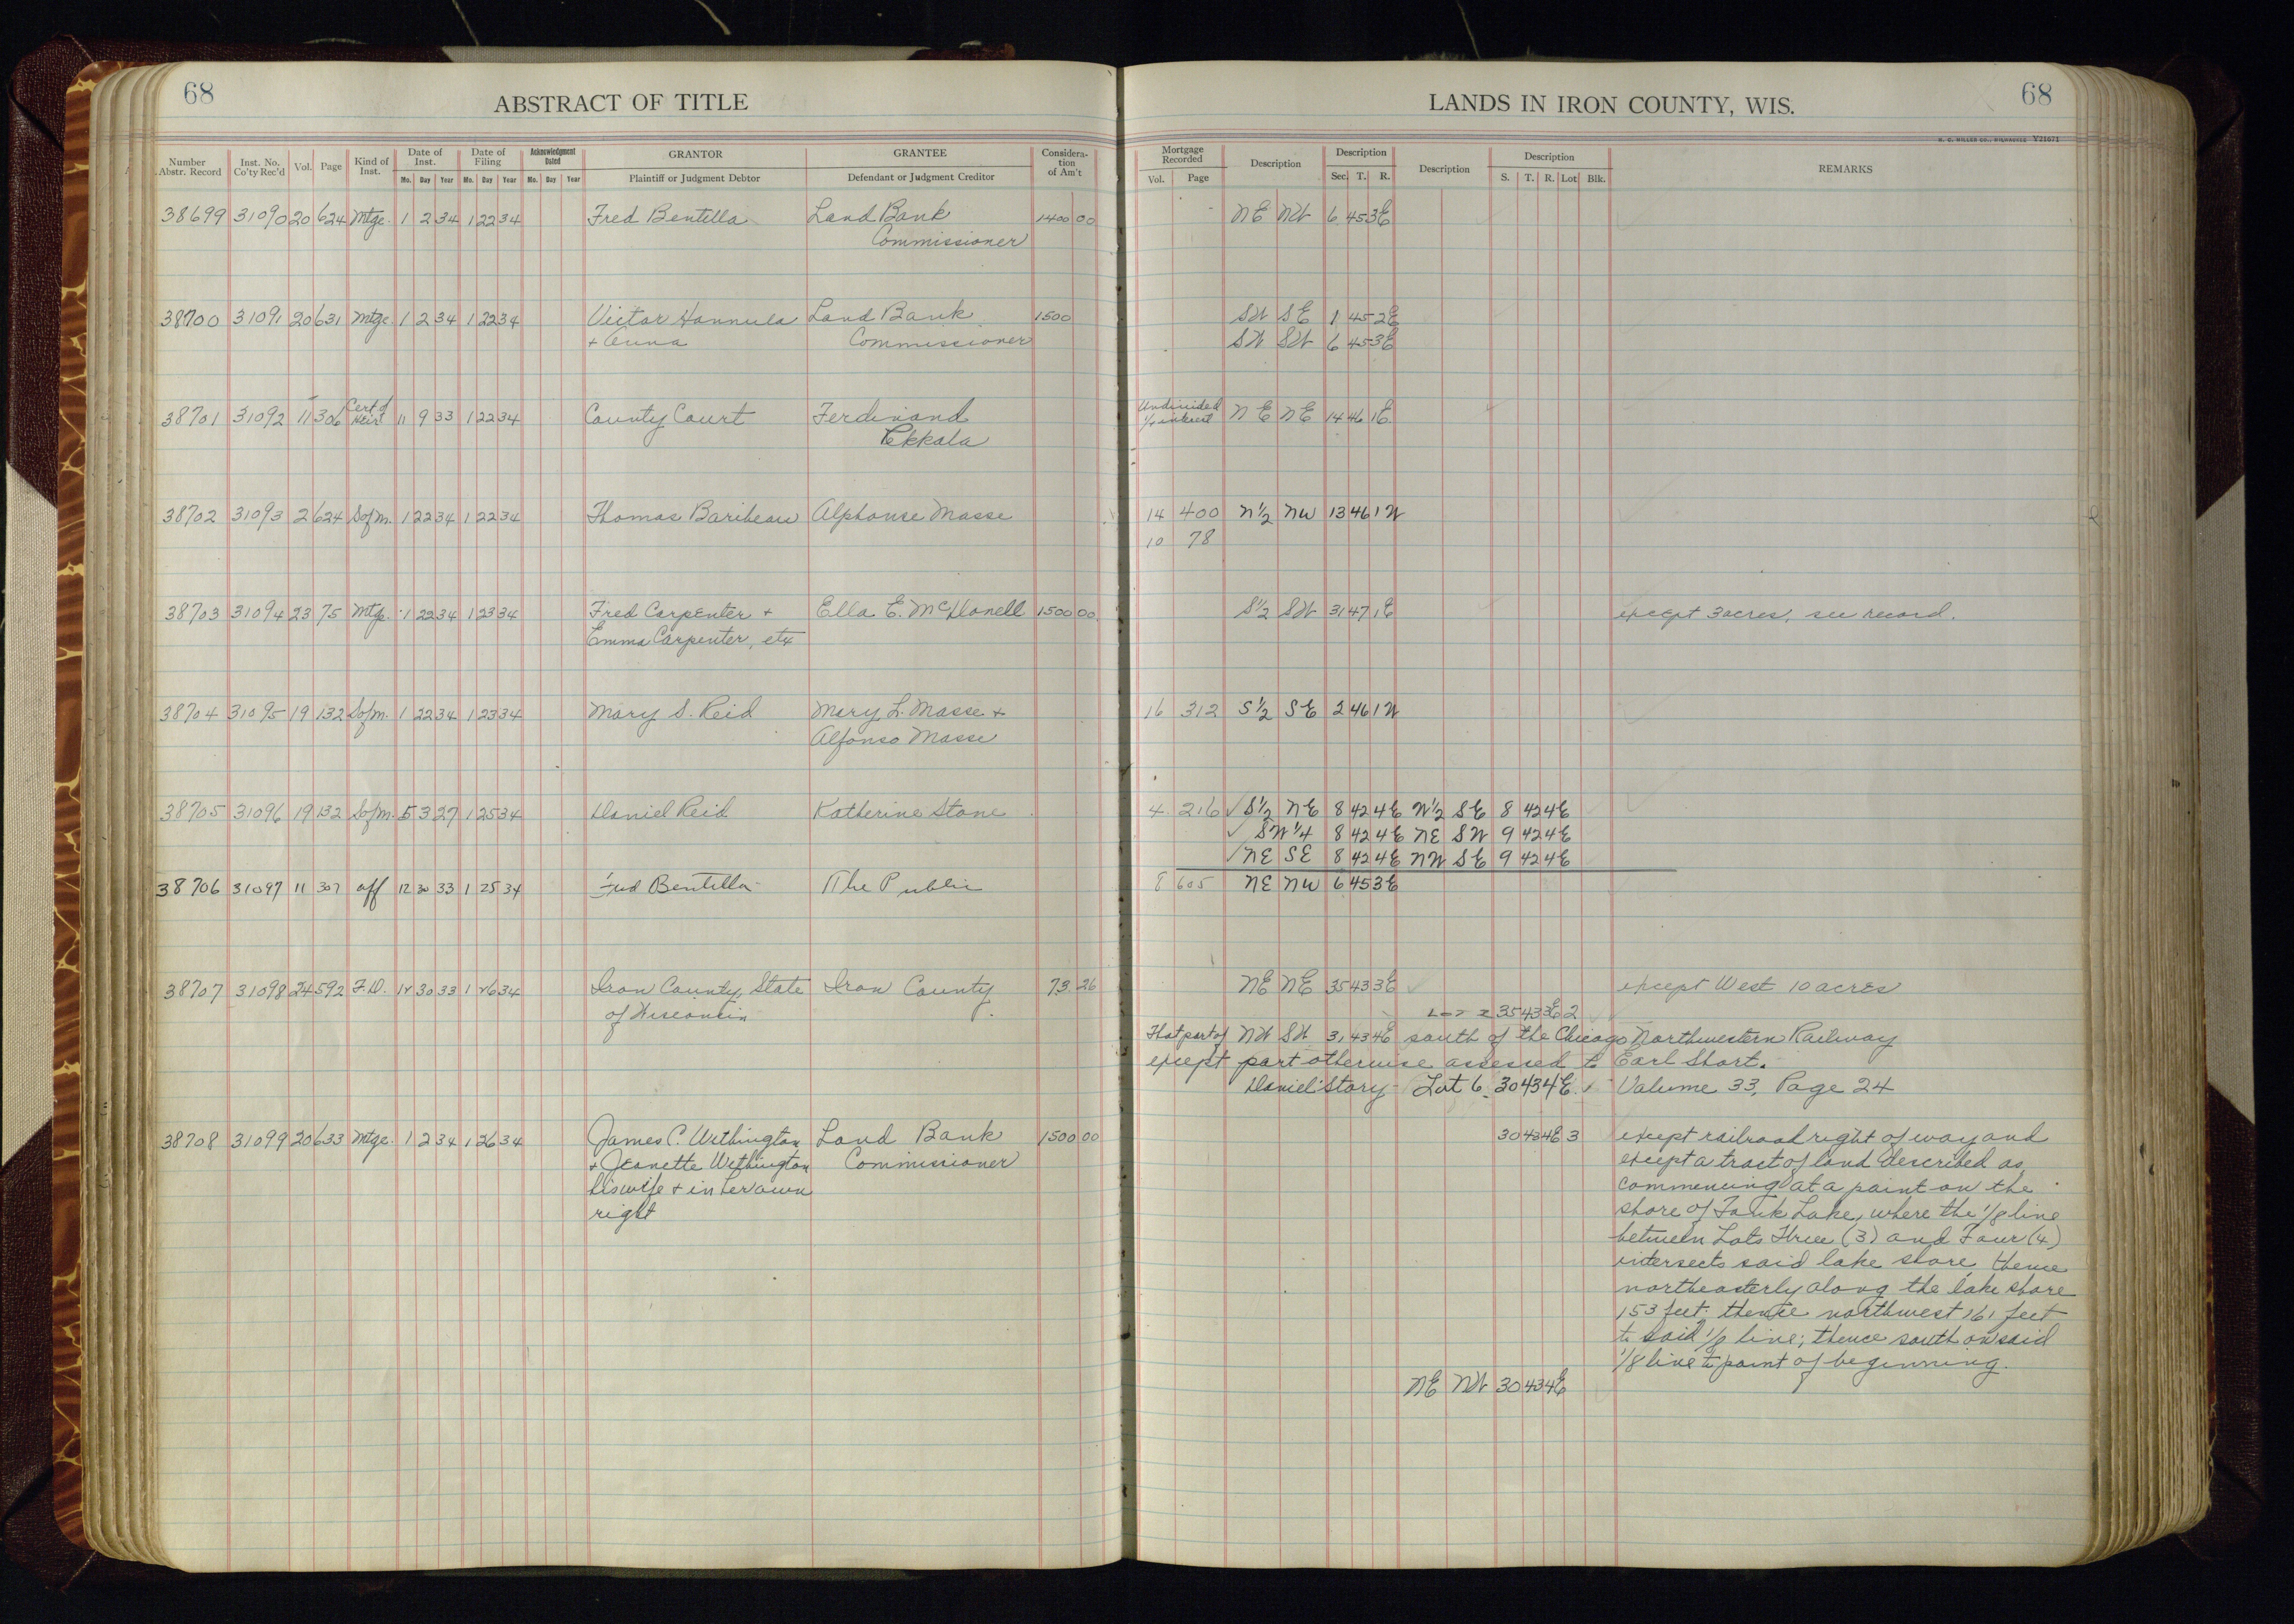 68
ABSTRACT OF TITLE
LANDS IN IRON COUNTY, WIS.
68
H. C. MILLER CO., MILWAUKEE V21671
Number Abstr. Record | Inst. No. Co'ty Rec'd | Vol. | Page | Kind of Inst. | Date of Inst. Mo. Day Year | Date of Filing Mo. Day Year | Acknowledgment Dated Mo. Day Year | GRANTOR Plaintiff or Judgment Debtor | GRANTEE Defendant or Judgment Creditor | Consideration of Am't | Mortgage Recorded Vol. Page | Description | Description Sec. T. R. | Description | Description S. T. R. Lot Blk. | REMARKS
38699 31090 20 624 Mtge. 1 2 34 1 22 34 Fred Bentilla Land Bank 1400 00 NE NW 6 45 3E
Commissioner
38700 31091 20 631 Mtge. 1 2 34 1 22 34 Victor Hannula Land Bank 1500 SW SE 1 45 2E
+ Anna Commissioner SW SW 6 45 3E
38701 31092 11 306 Cert of Heir 11 9 33 1 22 34 County Court Ferdinand Undivided 1/4 interest NE NE 14 46 1E
Pekkala
38702 31093 2 624 S of M. 1 22 34 1 22 34 Thomas Baribeau Alphonse Masse 14 400 N½ NW 13 46 1W
10 78
38703 31094 23 75 Mtge. 1 22 34 1 23 34 Fred Carpenter + Ella E. McDonell 1500 00 S½ SW 31 47 1E except 3 acres, see record.
Emma Carpenter, etx
38704 31095 19 132 S of M. 1 22 34 1 23 34 Mary S. Reid Mary L. Masse + 16 312 S½ SE 2 46 1W
Alfonso Masse
38705 31096 19 132 S of M. 5 3 27 1 25 34 Daniel Reid Katherine Stone 4 216 ✓ S½ NE 8 42 4E W½ SE 8 42 4E
✓ SW¼ 8 42 4E NE SW 9 42 4E
✓ NE SE 8 42 4E NW SE 9 42 4E
38706 31097 11 307 aff 12 30 33 1 25 34 Fred Bentilla The Public 8 605 NE NW 6 45 3E
38707 31098 24 592 F.D. 12 30 33 1 26 34 Iron County, State Iron County 73 26 NE NE 35 43 3E except West 10 acres
of Wisconsin Lot 2 35 43 3E 2
That part of NW SW 31 43 4E south of the Chicago Northwestern Railway
except part otherwise assessed to Earl Short.
Daniel Story Lot 6 30 43 4E Volume 33, Page 24
38708 31099 20 633 Mtge. 1 2 34 1 26 34 James C. Withington Land Bank 1500 00 30 43 4E 3 except railroad right of way and
+ Jeanette Withington Commissioner except a tract of land described as
his wife + in her own commencing at a point on the
right shore of Lake, where the 1/8 line
between Lots Three (3) and Four (4)
intersects said lake shore, thence
northeasterly along the lake shore
153 feet; thence northwest 161 feet
to said 1/8 line; thence south on said
1/8 line to point of beginning.
NE NW 30 43 4E